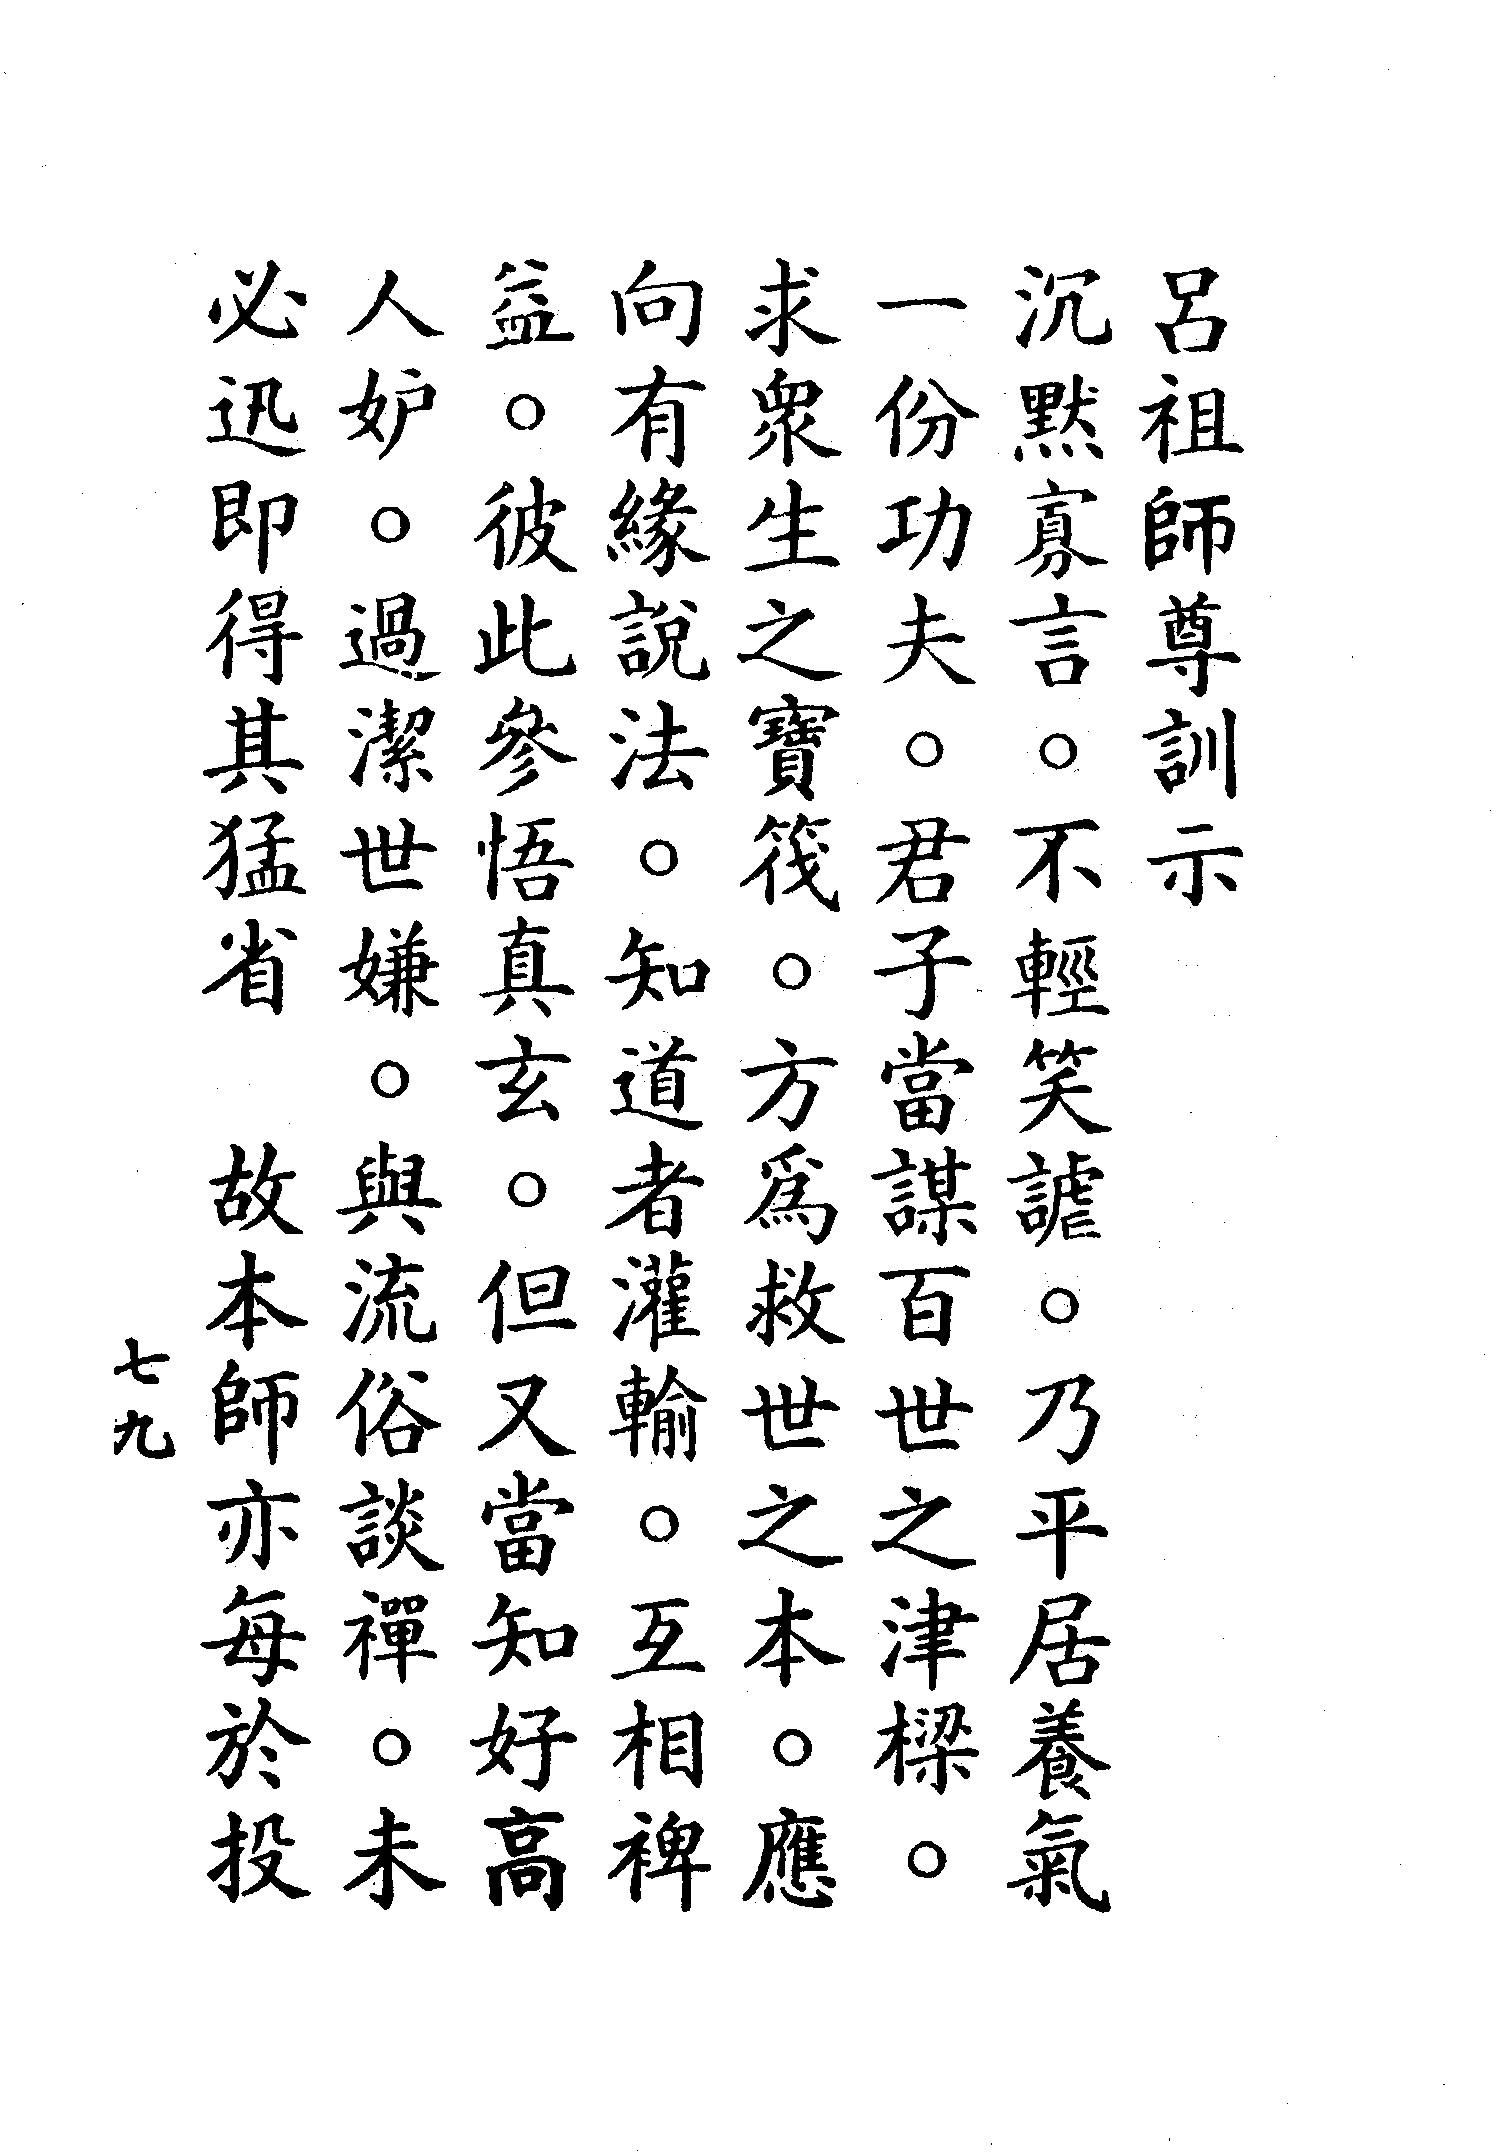 呂祖師尊訓示
沉默寡言。不輕笑謔。乃平居養氣
一份功夫。君子當謀百世之津樑。
求衆生之寶筏。方為救世之本。應
向有緣說法。知道者灌輸。互相裨
益。彼此參悟真玄。但又當知好高
人妒。過潔世嫌。與流俗談禪。未
必迅即得其猛省　故本師亦每於投
七九